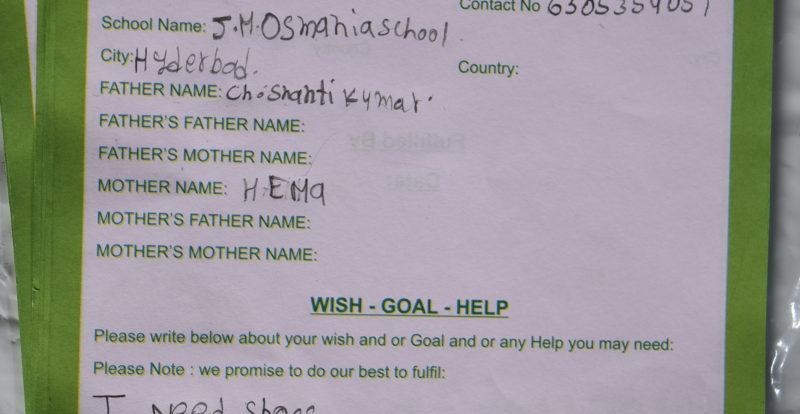 Contact No 6305354051
School Name: J.M.Osmaniaschool.
City: Hyderbad.
Country:
FATHER NAME: Ch.Shanti Kumar.
FATHER'S FATHER NAME:
FATHER'S MOTHER NAME:
MOTHER NAME: HEMa
MOTHER'S FATHER NAME:
MOTHER'S MOTHER NAME:
WISH - GOAL - HELP
Please write below about your wish and or Goal and or any Help you may need:
Please Note : we promise to do our best to fulfil:
I need